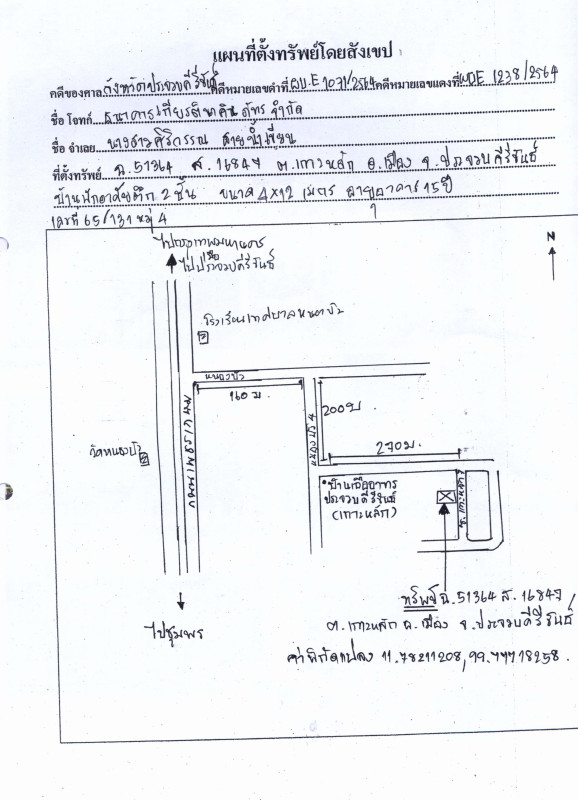 แผนที่ตั้งทรัพย์โดยสังเขป
คดีของศาล จังหวัดประจวบคีรีขันธ์ คดีหมายเลขดำที่ ผบ.E 1071/2564 คดีหมายเลขแดงที่ ผบE 1238/2564
ชื่อ โจทก์ ธนาคารเกียรตินาคินภัทร จำกัด
ชื่อ จำเลย นางสาวศิริวรรณ สายน้ำเขียน
ที่ตั้งทรัพย์ ฉ.51364 ส.16847 ต.เกาะหลัก อ.เมือง จ.ประจวบคีรีขันธ์
บ้านพักอาศัยตึก 2 ชั้น ขนาด 4x12 เมตร อายุอาคาร 15 ปี
เลขที่ 65/131 หมู่ 4
ไปกรุงเทพมหานคร
ไปประจวบคีรีขันธ์
N
โรงเรียนเทศบาลหนองบัว
หนองบัว
160 ม.
ถนนเพชรเกษม
200 ม.
270 ม.
วัดหนองบัว
บ้านเอื้ออาทร
ประจวบคีรีขันธ์
(เกาะหลัก)
ทรัพย์ ฉ.51364 ส.16847
ต.เกาะหลัก อ.เมือง จ.ประจวบคีรีขันธ์
ไปชุมพร
ค่าพิกัดแปลง 11.78211208, 99.77718258